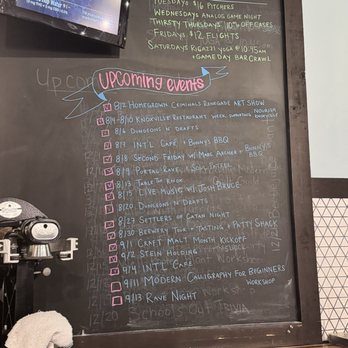 Tuesdays $16 Pitchers
Wednesdays Analog Game Night
Thirsty Thursdays 10% off Cases
Fridays $12 Flights
Saturdays Rigazzi Yoga @ 10:45am
+ Game Day Bar Crawl
Upcoming events
8/2 Homegrown Criminals Renegade Art Show
8/4-8/10 Knoxville Restaurant Week supporting Nourish Knoxville
8/6 Dungeons n' Drafts
8/7 Int'l Café + Bonny's BBQ
8/8 Second Friday w/ Marc Archer + Bonny's BBQ
8/9 Portal Rave
8/13 Table for Knox
8/15 Live Music w/ Josh Bruce
8/20 Dungeons n' Drafts
8/27 Settlers of Catan Night
8/30 Brewery Tour + Tasting + Patty Shack
9/1 Craft Malt Month Kickoff
9/2 Stein Holding
9/4 Int'l Café
9/11 Modern Calligraphy for Beginners Workshop
9/13 Rave Night
12/20 School's Out Trivia